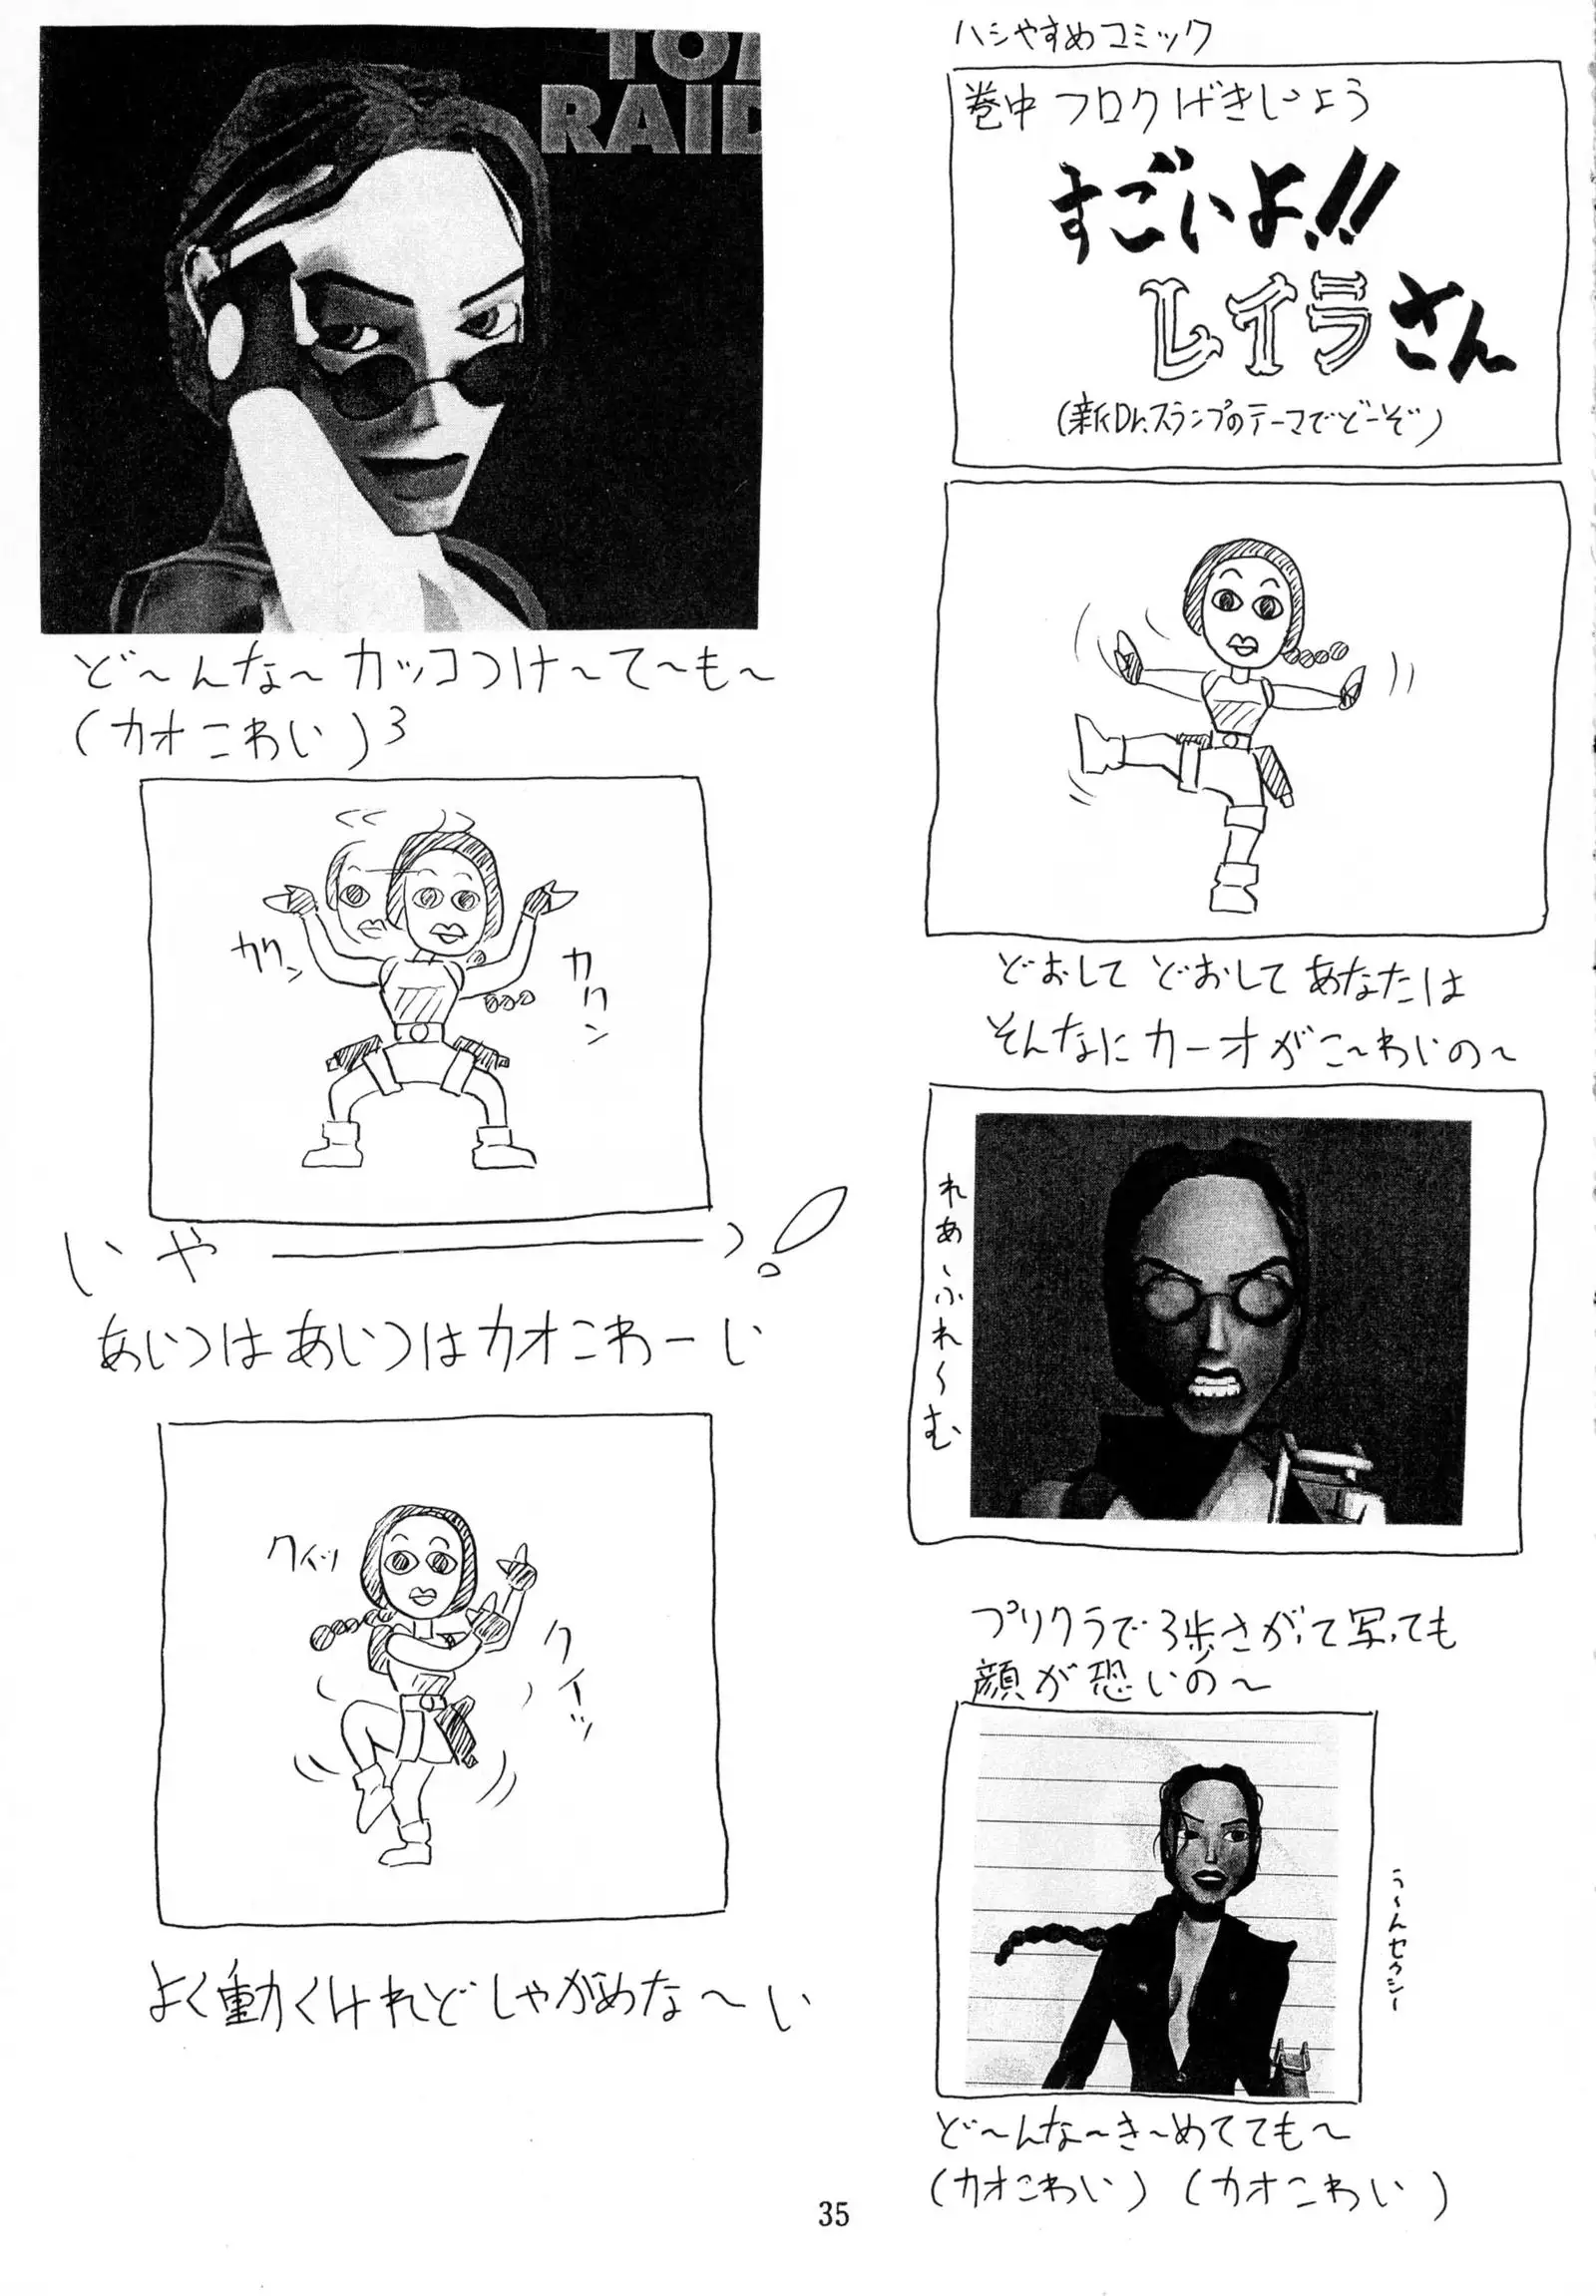 ハシやすめコミック
巻中フロクげきじょう
すごいよ!!
レイラさん
(新Dr.スランプのテーマでどーぞ)
どおして どおして あなたは
そんなに カーオが こ〜わいの〜
れあ〜ふれ〜む
プリクラで3歩さがって写っても
顔が恐いの〜
う〜んセクシー
ど〜んな〜き〜めてても〜
(カオこわい) (カオこわい)
RAID
ど〜んな〜カッコつけ〜て〜も〜
(カオこわい)3
カクン
カクン
いや――――っ!
あいつは あいつは カオこわーい
クイッ
クイーッ
よく動くけれどしゃがめな〜い
35